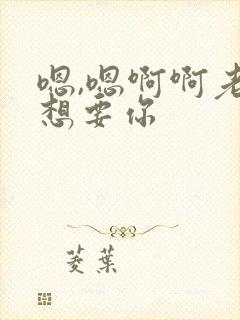 嗯,嗯啊啊老
想要你
菱葉